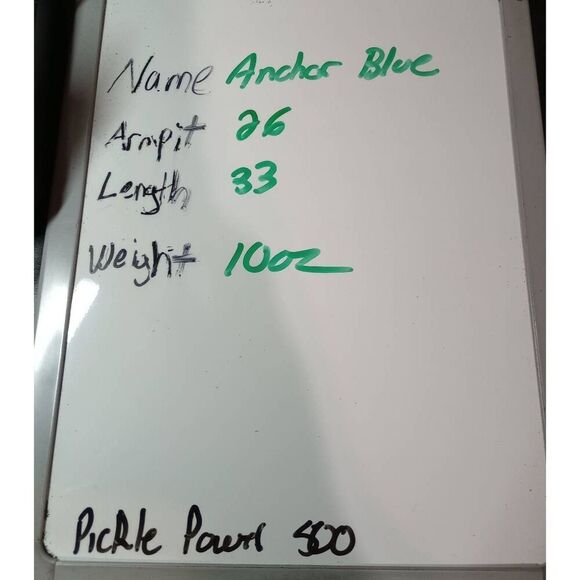 Name Anchor Blue
Armpit 26
Length 33
Weight 10oz
Pickle Power 500